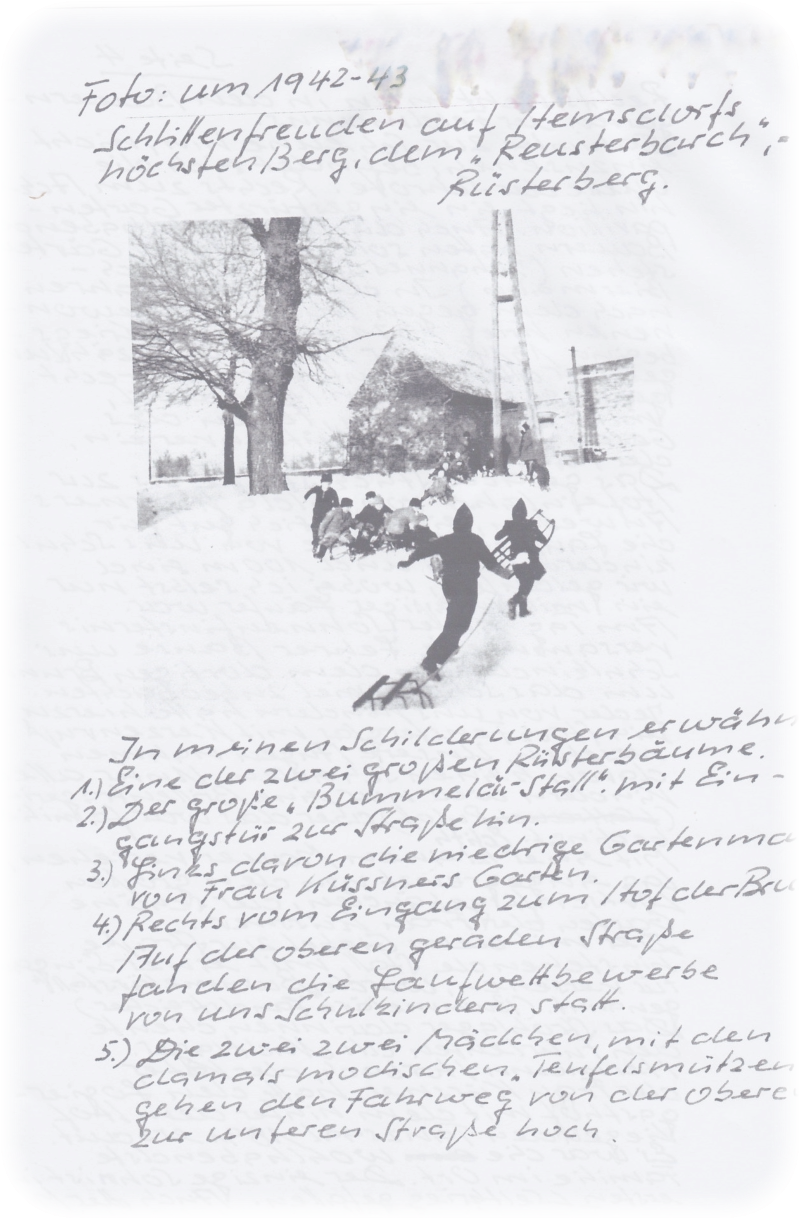 Foto: um 1942-43
Schlittenfreuden auf Hemsdorfs
höchsten Berg, dem "Reusterbarch",-
Rüsterberg.
In meinen Schilderungen erwähn
1.) Eine der zwei großen Rüsterbäume.
2.) Der große "Bummelär-Stall" mit Ein-
gangstür zur Straße hin.
3.) Links davon die niedrige Gartenma
von Frau Küssners Garten.
4.) Rechts vom Eingang zum Hof der Bru
Auf der oberen geraden Straße
fanden die Laufwettbewerbe
von uns Schulkindern statt.
5.) Die zwei zwei Mädchen, mit den
damals modischen "Teufelsmützen
gehen den Fahrweg von der obere
zur unteren Straße hoch.